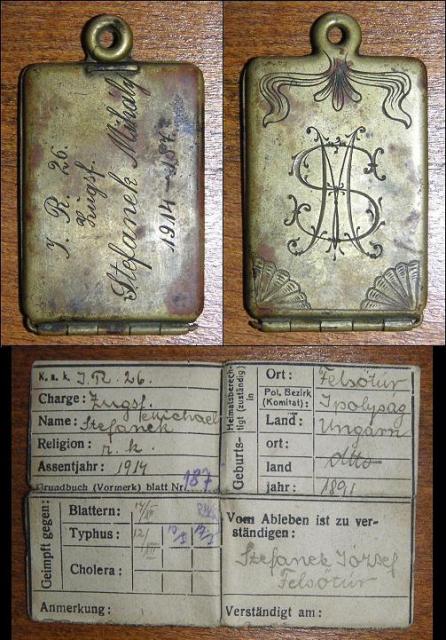 I. R. 26.
Zugsf.
Stefanek Mihály
1914 - 187
MS
K. u. k. I. R. 26.
Charge: Zugsf.
Name: Stefanek Michael
Religion: r. k.
Assentjahr: 1914
Grundbuch (Vormerk) blatt Nr. 187
Heimatsberechtigt (zuständig) in
Ort: Felsőtur
Pol. Bezirk (Komitat): Ipolyság
Land: Ungarn
Geburts-
ort: dtto
land
jahr: 1891
Geimpft gegen:
Blattern:
Typhus:
Cholera:
Anmerkung:
Vom Ableben ist zu verständigen:
Stefanek József
Felsőtur
Verständigt am: